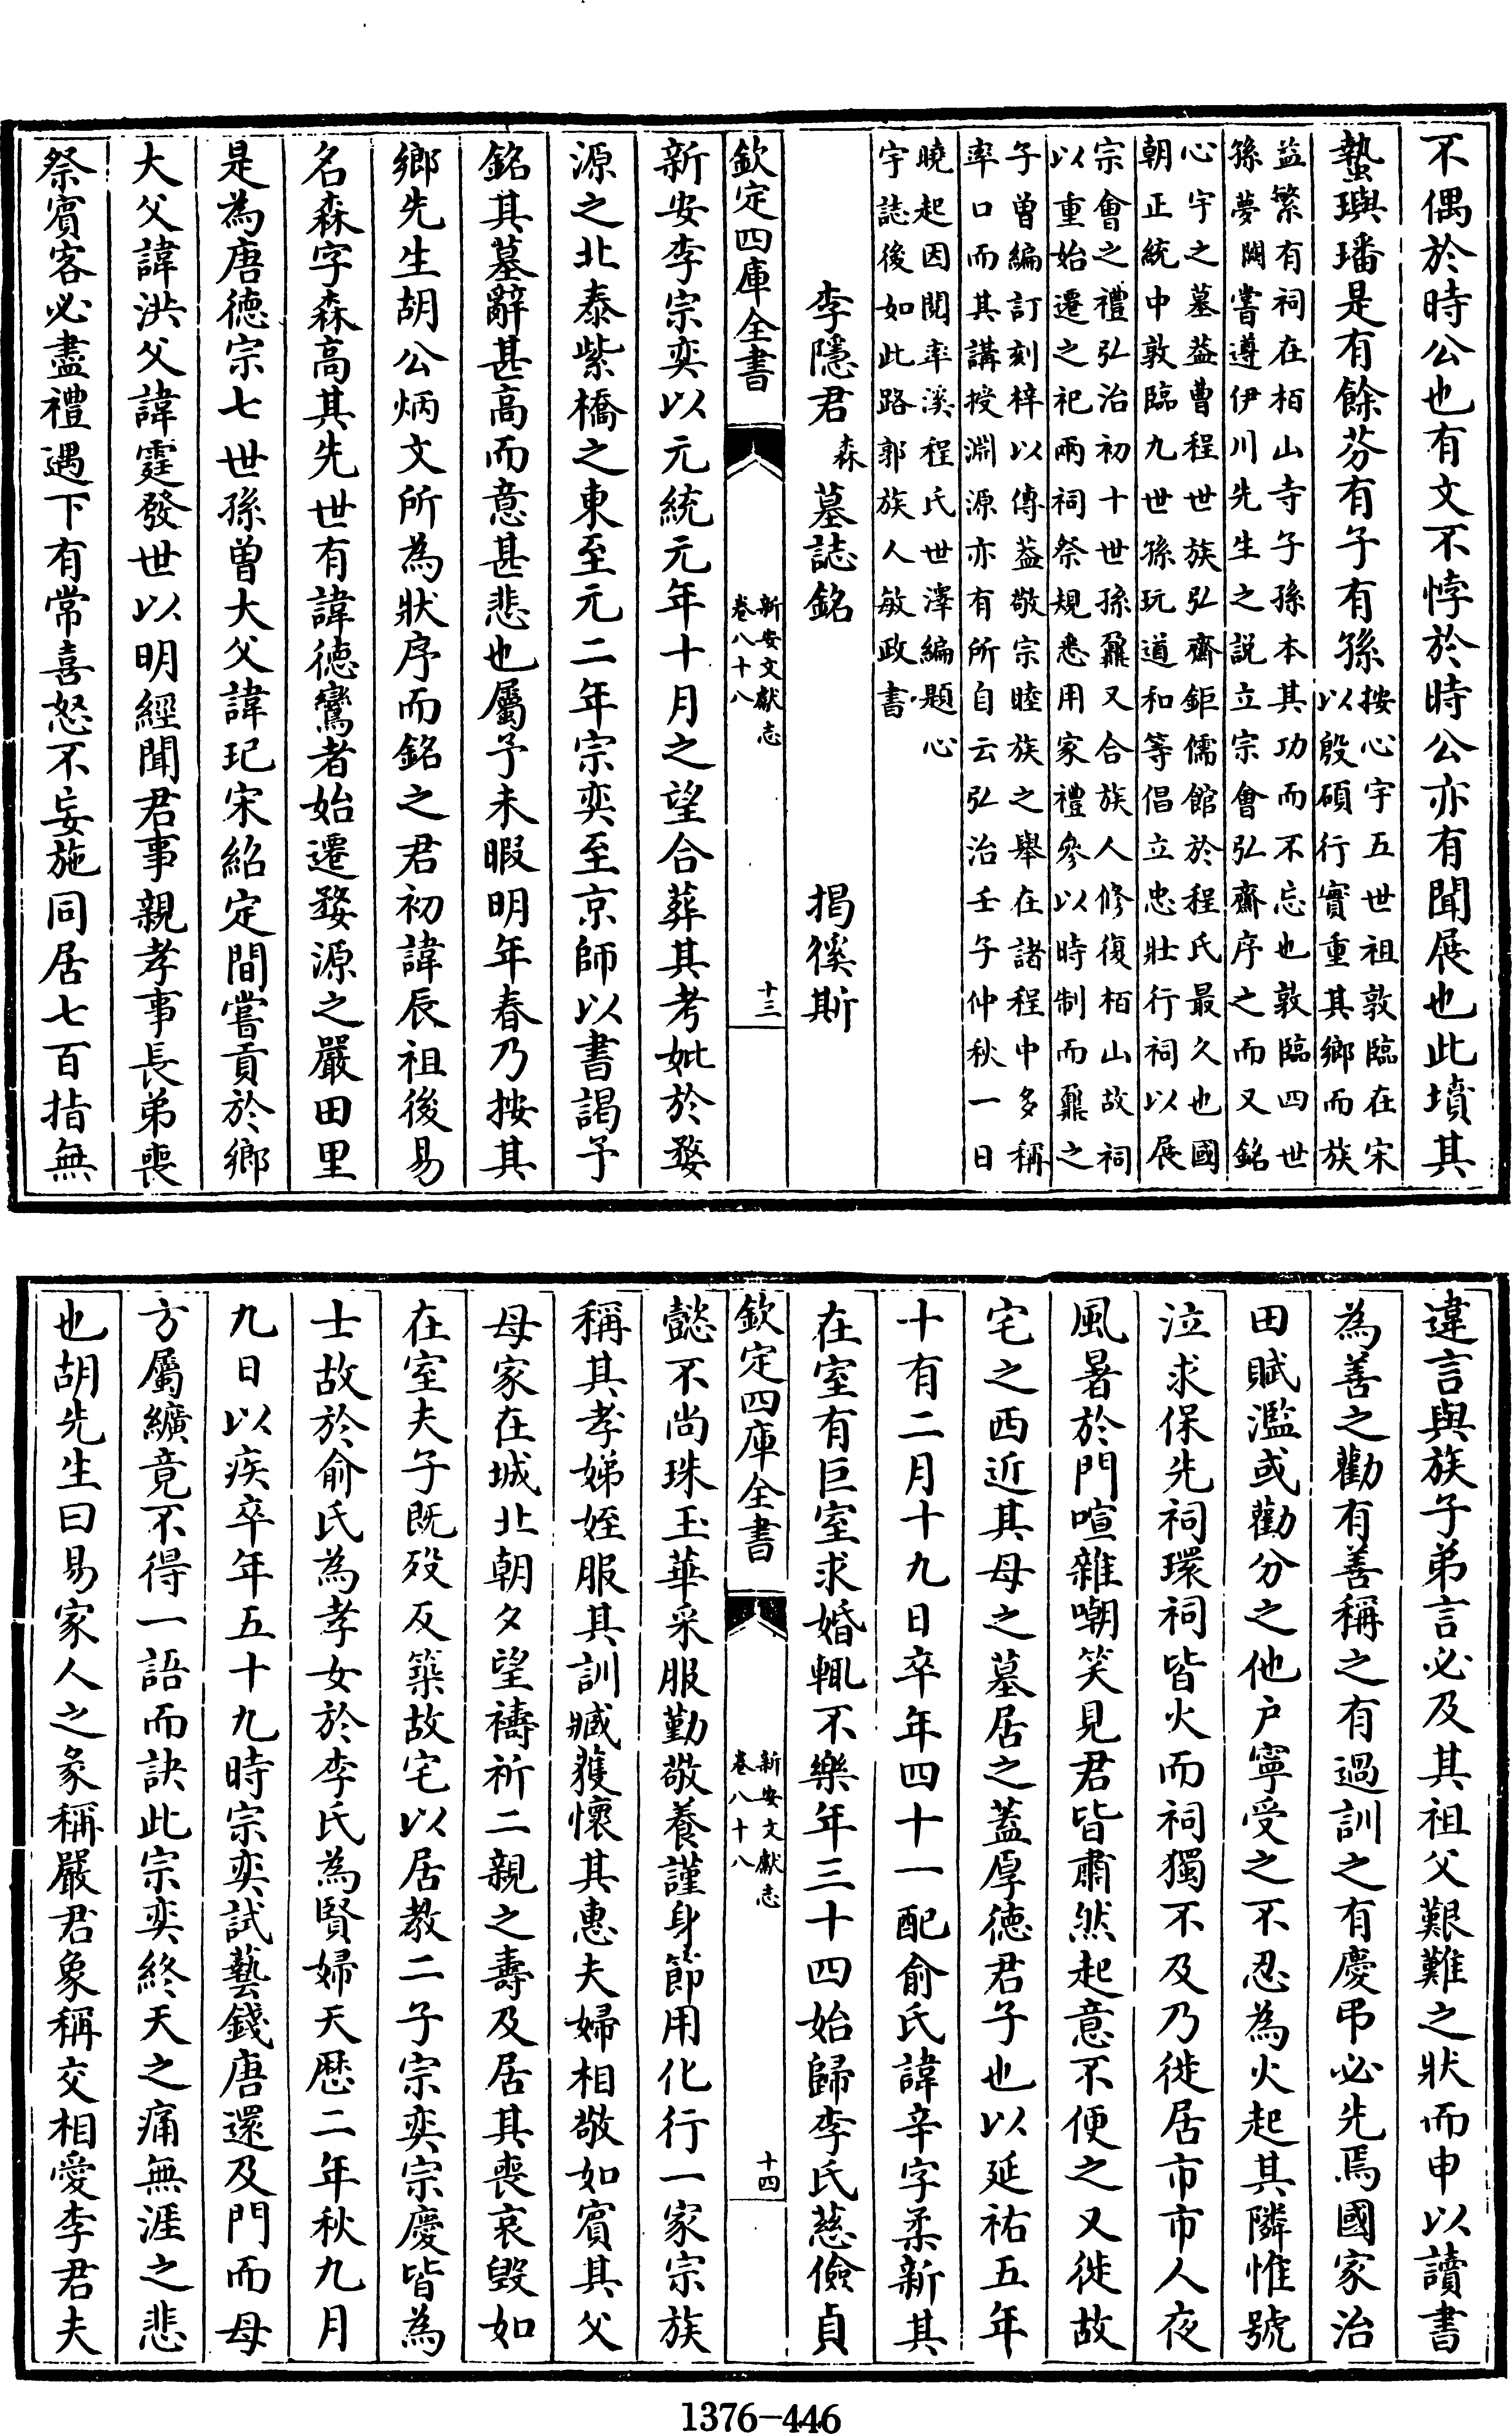 不偶於時公也有文不悖於時公亦有聞展也此墳其
蟄璵璠是有餘芬有子有孫按心宇五世祖敦臨在宋
以殷碩行實重其鄉而族
益繁有祠在栢山寺子孫本其功而不忘也敦臨四世
孫夢闕嘗遵伊川先生之説立宗會弘齋序之而又銘
心宇之墓葢曹程世族弘齋鉅儒館於程氏最久也國
朝正統中敦臨九世孫玩道和等倡立忠壯行祠以展
宗會之禮弘治初十世孫鼐又合族人修復栢山故祠
以重始遷之祀兩祠祭規悉用家禮參以時制而鼐之
子曽編訂刻梓以傳葢敬宗睦族之舉在諸程中多稱
率口而其講授淵源亦有所自云弘治壬子仲秋一日
曉起因閲率溪程氏世澤編題心
宇誌後如此路郭族人敏政書
李隱君森墓誌銘　揭徯斯
欽定四庫全書　新安文獻志
卷八十八　十三
新安李宗奕以元統元年十月之望合葬其考妣於婺
源之北泰紫橋之東至元二年宗奕至京師以書謁予
銘其墓辭甚高而意甚悲也屬予未暇明年春乃按其
鄉先生胡公炳文所為狀序而銘之君初諱辰祖後易
名森字森高其先世有諱徳鸞者始遷婺源之嚴田里
是為唐徳宗七世孫曽大父諱玘宋紹定間嘗貢於鄉
大父諱洪父諱霆發世以明經聞君事親孝事長弟喪
祭賓客必盡禮遇下有常喜怒不妄施同居七百指無
違言與族子弟言必及其祖父艱難之狀而申以讀書
為善之勸有善稱之有過訓之有慶弔必先焉國家治
田賦濫或勸分之他户寧受之不忍為火起其隣惟號
泣求保先祠環祠皆火而祠獨不及乃徙居市市人夜
風暑於門喧雜嘲笑見君皆肅然起意不便之又徙故
宅之西近其母之墓居之蓋厚徳君子也以延祐五年
十有二月十九日卒年四十一配俞氏諱辛字柔新其
在室有巨室求婚輒不樂年三十四始歸李氏慈儉貞
欽定四庫全書　新安文獻志
卷八十八　十四
懿不尚珠玉華采服勤敬養謹身節用化行一家宗族
稱其孝娣姪服其訓臧獲懷其惠夫婦相敬如賓其父
母家在城北朝夕望禱祈二親之壽及居其喪哀毁如
在室夫子既歿反築故宅以居教二子宗奕宗慶皆為
士故於俞氏為孝女於李氏為賢婦天厯二年秋九月
九日以疾卒年五十九時宗奕試藝錢唐還及門而母
方屬纊竟不得一語而訣此宗奕終天之痛無涯之悲
也胡先生曰易家人之彖稱嚴君象稱交相愛李君夫
1376-446